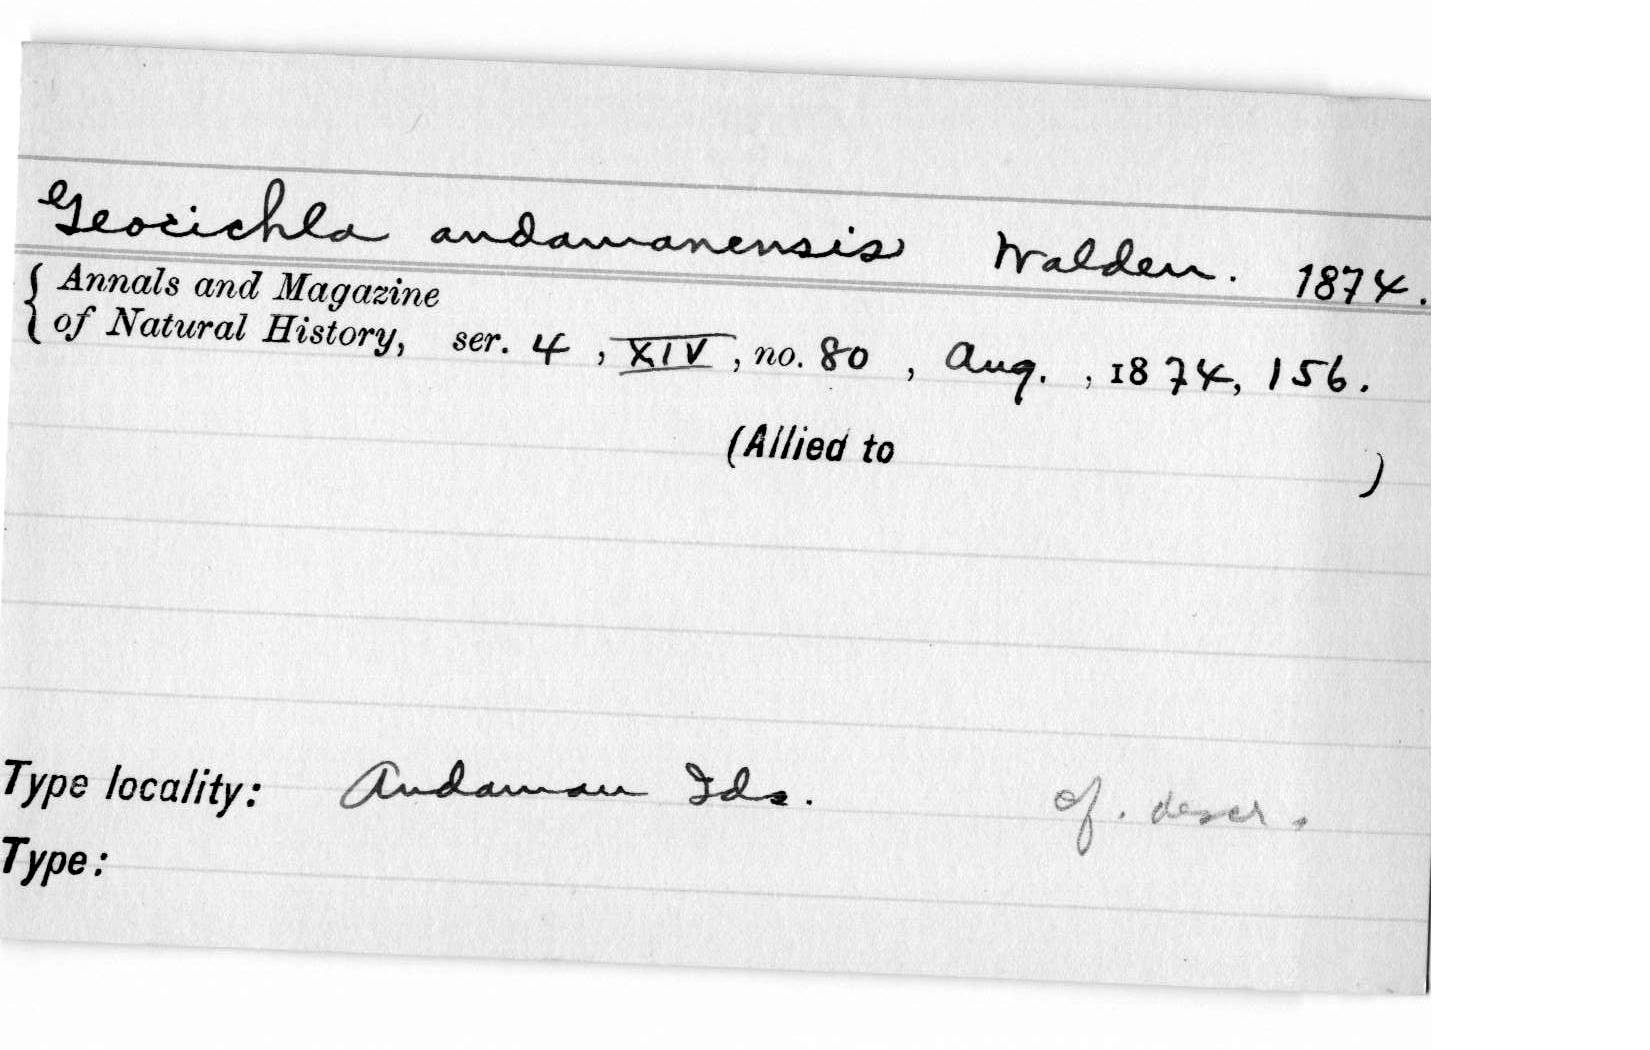 Geocichla andamanensis Walden. 1874.
{ Annals and Magazine
of Natural History, ser. 4, XIV, no. 80, Aug., 1874, 156.
(Allied to )
Type locality: Andaman Ids. of. descr.
Type: